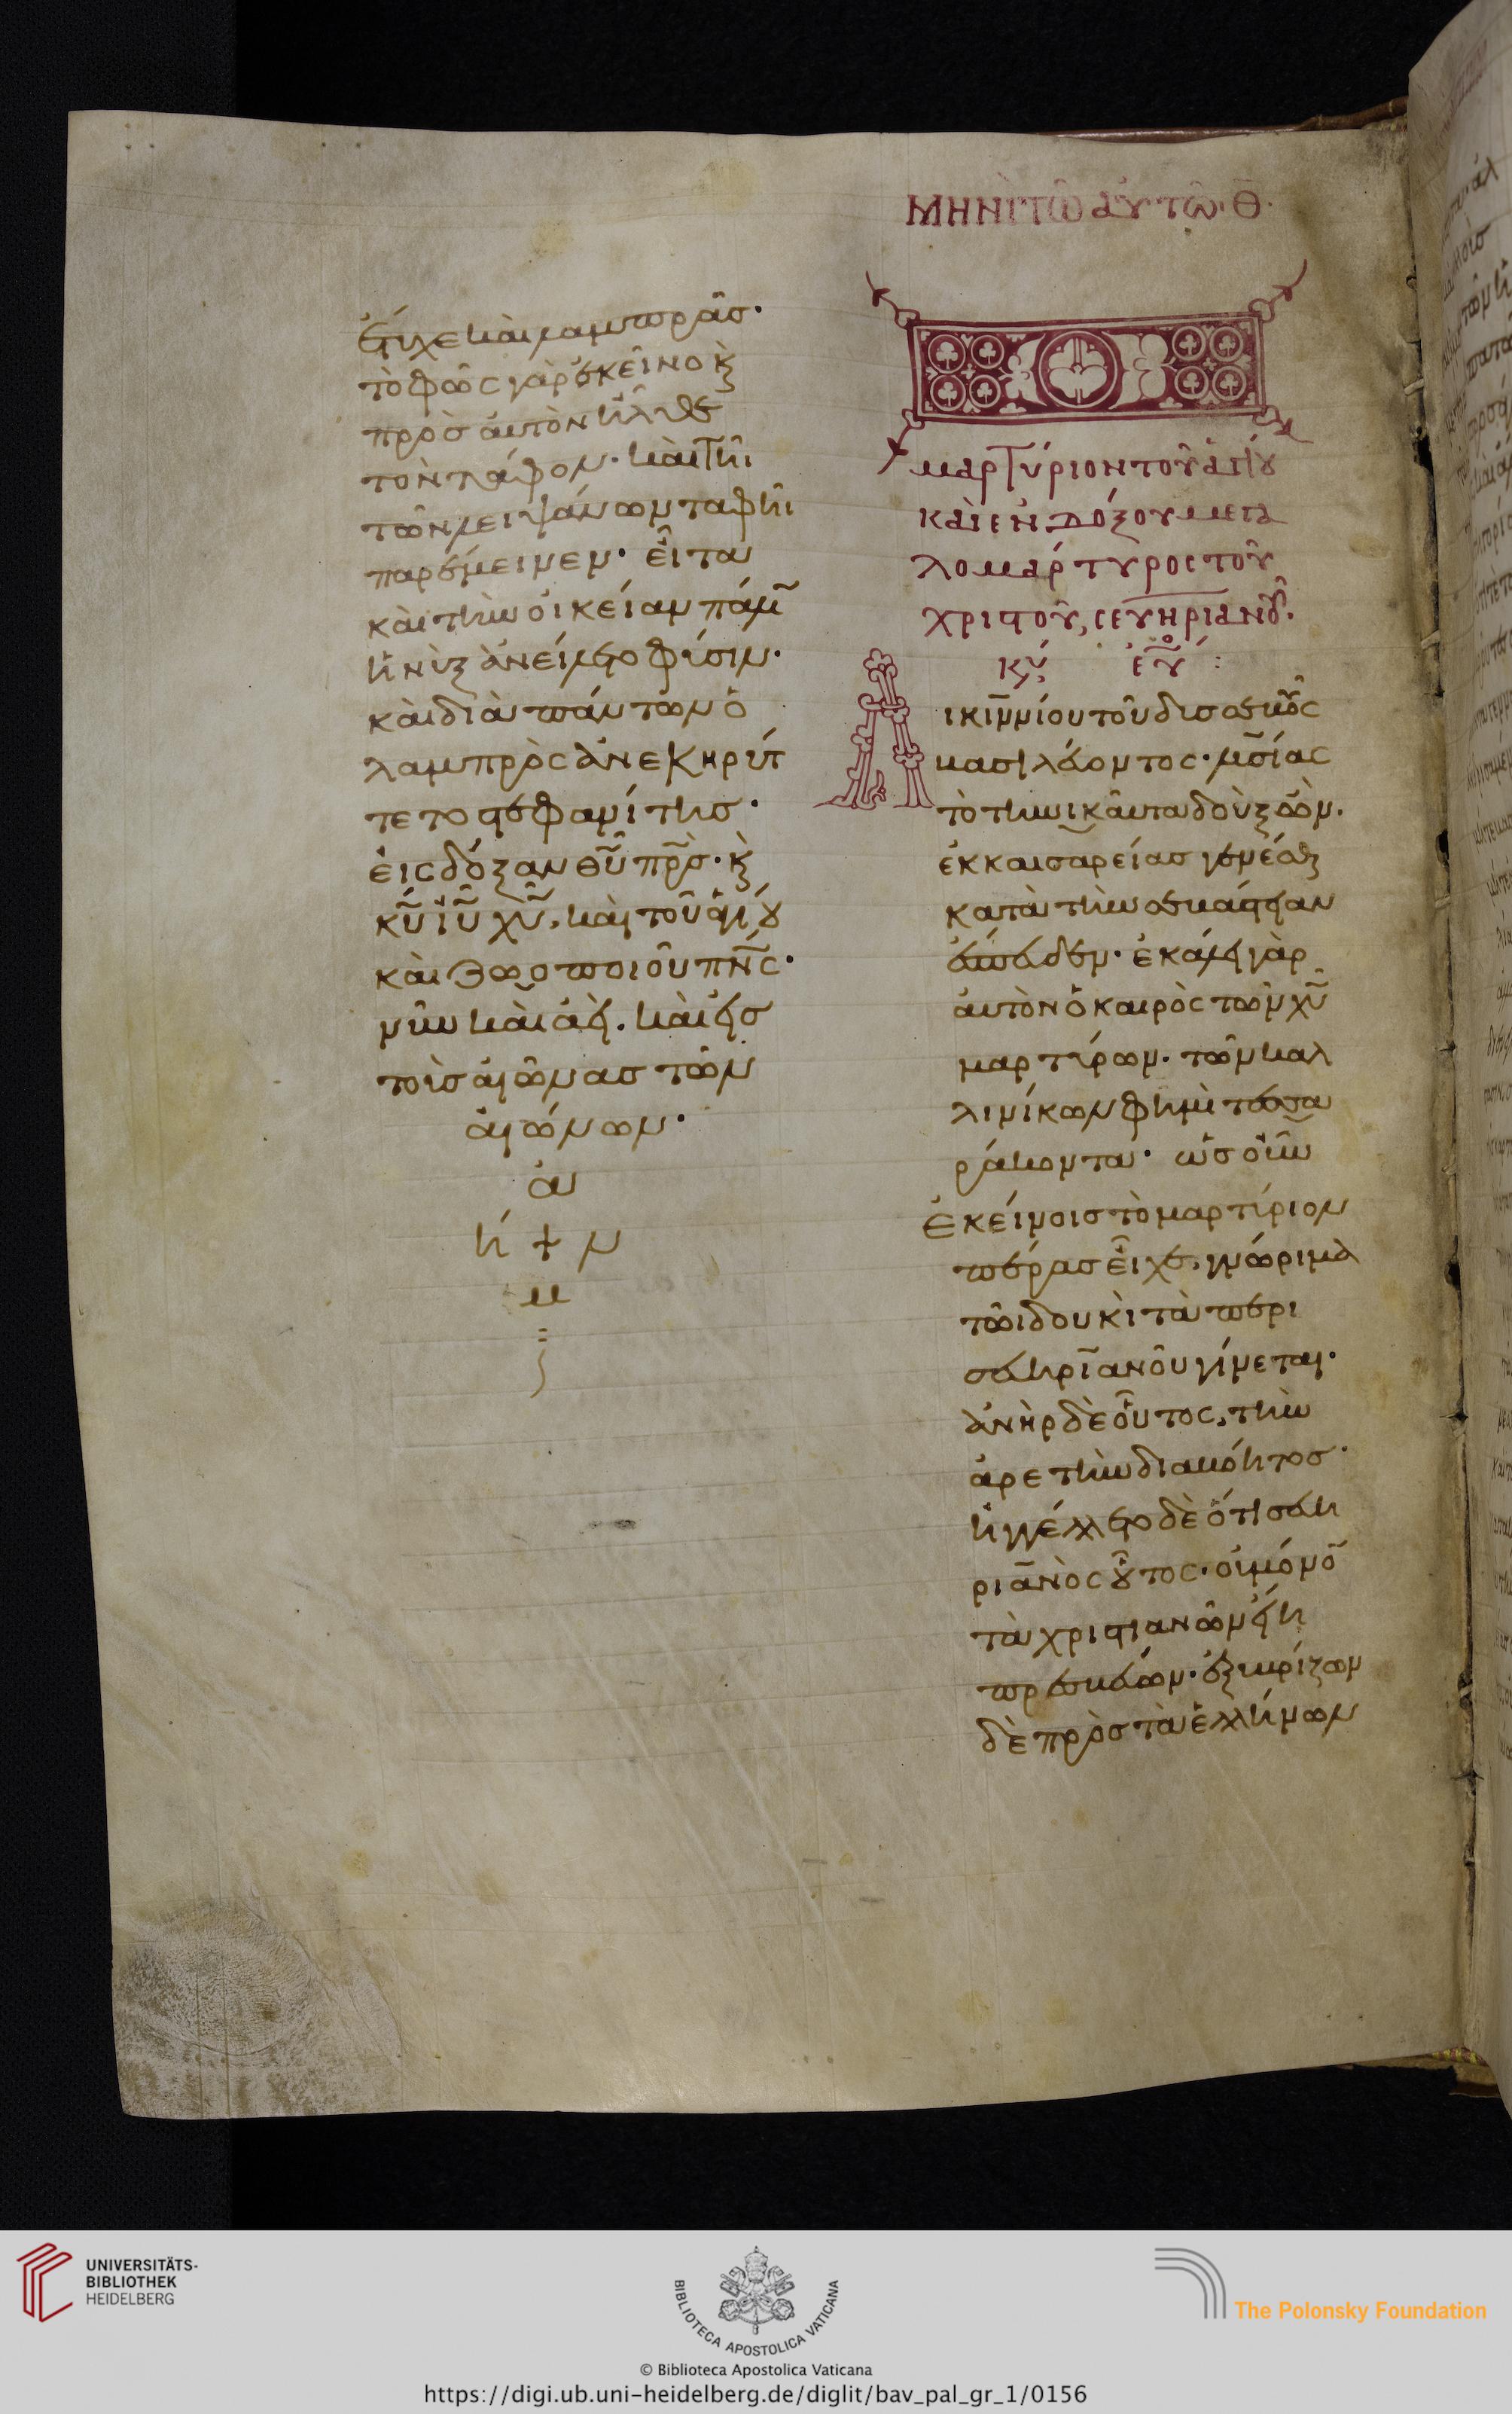 εἶχε καὶ λαμπρᾶς·
τὸ φῶς γὰρ ἐκεῖνο κ(αὶ)
πρὸς αὐτὸν ἦλθε
τὸν τάφον· καὶ τῆι
τῶν λειψάνων ταφῆι
παρέμεινεν· εἶτα
καὶ τὴν οἰκείαν πάλ̃
κὰι διὰ πάντων ὁ
λαμπρὸς ἀνεκηρύτ
τετο στεφανίτης·
εἰς δόξαν θῦ πρ̅ς· κ(αὶ)
κῦ ἰῦ χῦ, καὶ τοῦ ἁγίου
καὶ ζωοποιοῦ πν̅ς·
νῦν καὶ ἀεὶ. καὶ εἰς
τοὺς αἰῶνας τῶν
αἰώνων·
ἀ
ή + ν
μ
ΜΗΝῚ ΤΩ͂ ΑΥ̓ΤΩ͂· Θ̅·
μαρτύριον τοῦ ἁγίου
καὶ ἐνδόξου μεγα
λομάρτυρος τοῦ
χριστοῦ, σευηριανοῦ.
Λικιννίου τοῦ δυσσεβοῦς
βασιλεύοντος· λυσίας
τὸ τηνικαῦτα δοὺξ ὢν.
ἐκ καισαρείας γενέσθ(αι)
κατὰ τὴν σεβάστειαν
ἔσπευδεν· ἐκάλει γὰρ
αὐτὸν ὁ καιρὸς τῶν χῦ
μαρτύρων. τῶν καλ
λινίκων φημὶ τεσσα
ράκοντα· ὡς οὖν
ἐκείνοις τὸ μαρτύριον
πέρας εἶχε, γνώριμα
τῶι δουκὶ τὰ περὶ
σευηριανοῦ γίνεται·
ἀνὴρ δὲ οὗτος, τὴν
ἀρετὴν διαβόητος·
ἠγγέλλετο δὲ ὅτι σευη
ριανὸς οὗτος· οὐ μόνο̃
τὰ χριστιανῶν εἴη
πρεσβεύων· ἐξυβρίζων
δὲ πρὸς τὰ ἑλλήνων
UNIVERSITÄTS-
BIBLIOTHEK
HEIDELBERG
BIBLIOTECA APOSTOLICA VATICANA
The Polonsky Foundation
© Biblioteca Apostolica Vaticana
https://digi.ub.uni-heidelberg.de/diglit/bav_pal_gr_1/0156